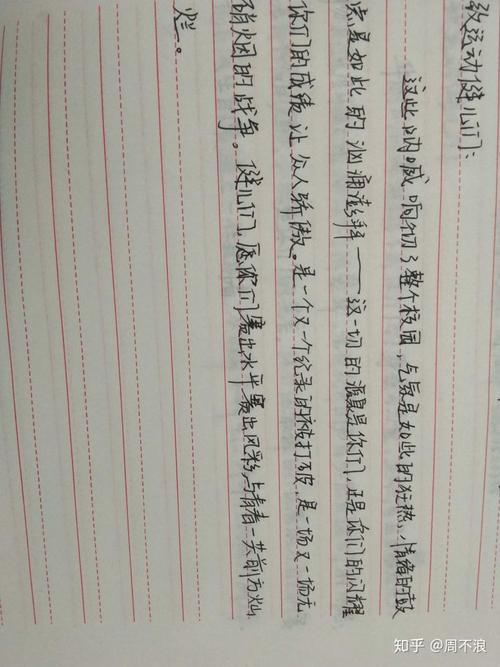 致运动健儿们:
这些呐喊,响彻了整个校园,气氛是如此的狂热,情绪的鼓
点是如此的汹涌澎湃——这一切的源泉是你们,正是你们的闪耀
你们的成绩让众人骄傲。是一个又一个纪录的被打破,是一场又一场无
硝烟的战争。健儿们,愿你们赛出水平赛出风彩,与青春一共前方灿
烂。
知乎 @周不浪